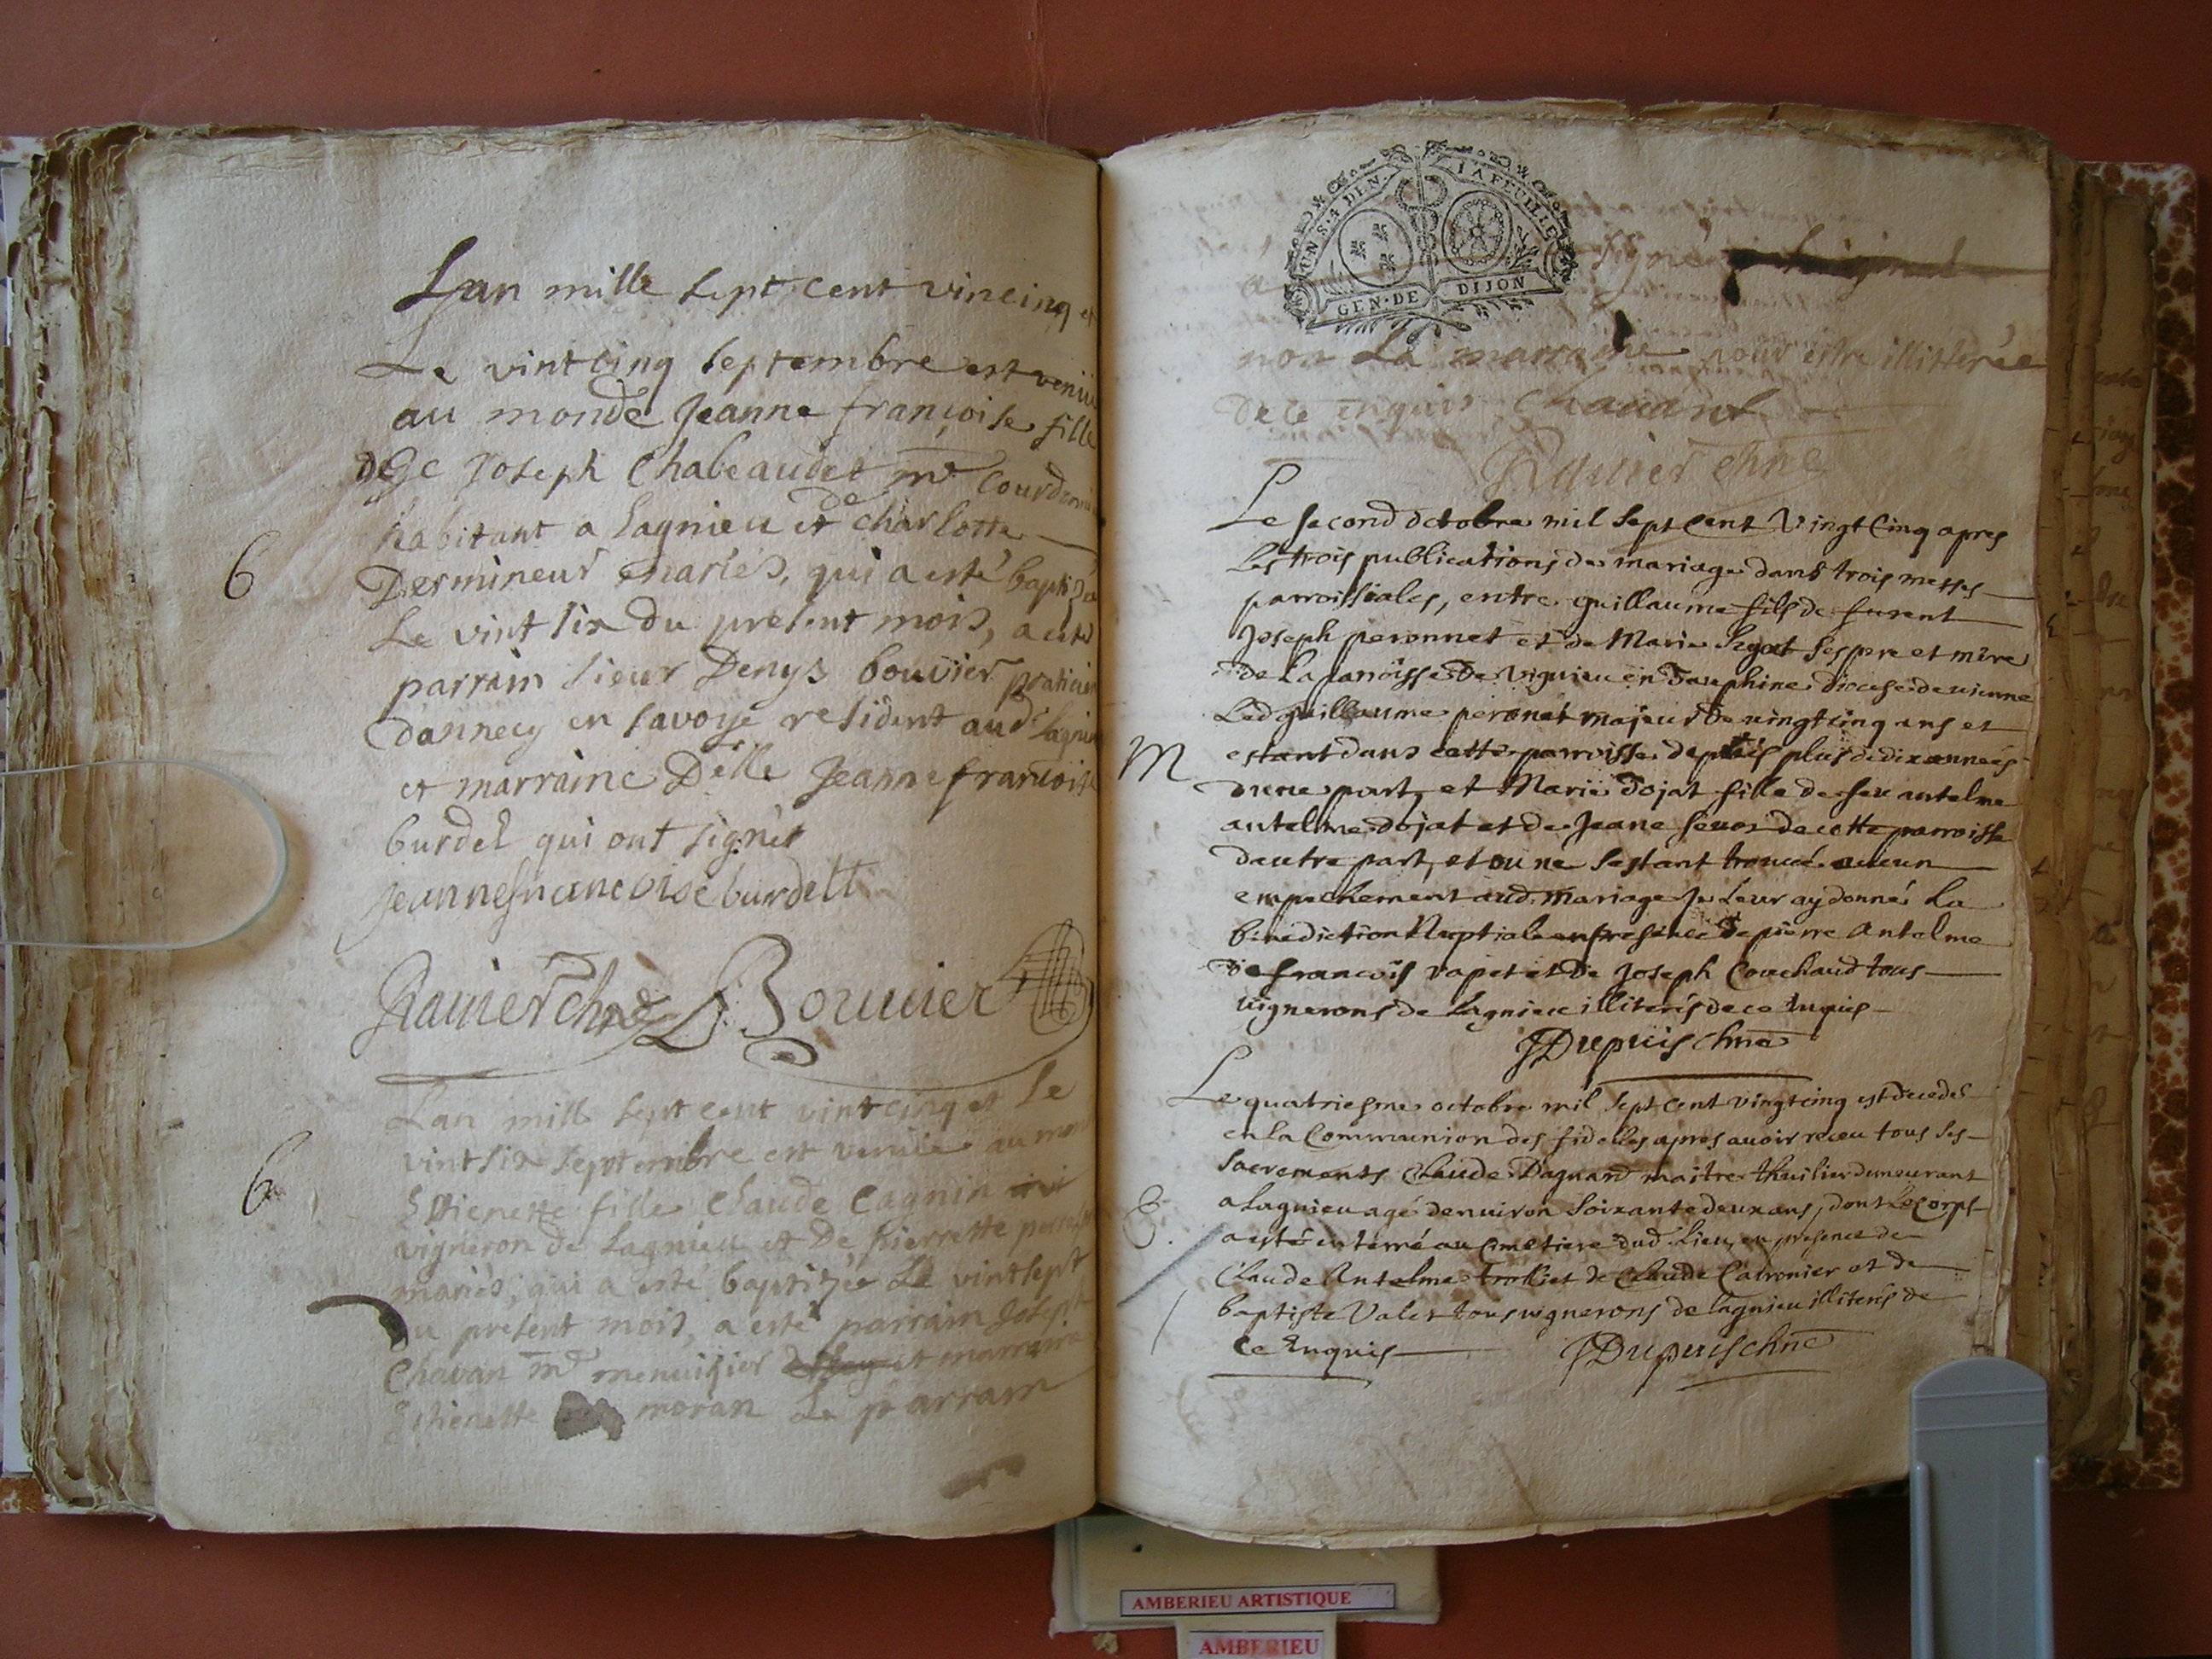 Lan mille sept cent vincinq et
Le vintcinq septembre est venüe
au monde Jeanne françoise fille
de Joseph Chabeaudet mᵉ Courdonnier
habitant a Lagnieu et de charlotte
Dermineur mariés, qui a esté baptisée
Le vintsix du present mois, a esté
parrain sieur Denys bouvier praticien
dannecy en savoye resident aud Lagnieu
et marraine Delle Jeanne francoise
burdel qui ont signés
jeannefrancoise burdett
Rauier chne D. Bouuier
Lan mill sept cent vintcinq et le
vintsix septembre est venüe au monde
Estienette fille Claude Cagnin
vigneron de Lagnieu et De pierrette
mariés, qui a esté baptizée Le vintsept
Du present mois, a esté parrain Joseph
Chavan mᵉ menuisier et marraine
Estienette moran Le parrain
6
6
UN S. 4 DEN. LA FEUILLE
GEN. DE DIJON
a signé
non La marraine pour estre illitterée
de ce enquis Chauant
Rauier chne
Le second octobre mil sept cent Vingt Cinq apres
Les trois publications de mariage dans trois messes
parroissiales, entre guillaume fils de furent
Joseph peronnet et de Marie ses pere et mere
de La parroisse De Viguieu en Dauphine diocese de vienne
Led guillaume peronet majeur De vingtcinq ans et
estant dans cette parroisse depuis plus de dix années
dune part, et Marie Dojat fille de feu antelme
antelme dojat et de Jeane de cette parroisse
dautre part, et ou ne sestant trouvé aucun
empechement aud. mariage Je Leur ay donné La
benediction Nuptiale en presence De pierre Antelme
de francois vapet et De Joseph Couchaud tous
vignerons de Lagnieu illiterés de ce Enquis
JDupuis chne
M
Le quatriesme octobre mil sept cent vingtcinq est decedé
en La Communion des fidelles apres avoir receu tous ses
sacrements Claude Daguard maitre thuilier demeurant
a Lagnieu agé denviron soixante deux ans, dont Le Corps
a esté enterré au Cimetiere dud. Lieu, en presence de
Claude Antelme trolliet de Claude Catronier et de
baptiste Valet tous vignerons de lagnieu illiterés de
Ce Enquis JDupuis chne
AMBERIEU ARTISTIQUE
AMBERIEU